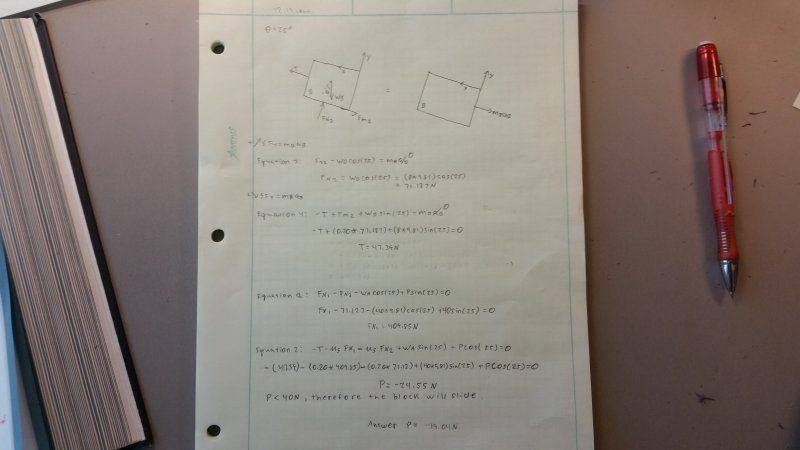 θ=25°
y
x
B
WB
FN2
Fm2
=
y
x
B
ΣFy=mBaB
Equation 3: FN2 - WBcos(25) = mBaB 0
FN2 = WBcos(25) = (8*9.81)cos(25)
= 71.127N
Equation 4: -T + Fm2 + WBsin(25) - mBaB 0
-T+(0.20*71.127)+(8*9.81)sin(25)=0
T=47.39N
Equation 1: FN1 - FN2 - WAcos(25)+Psin(25)=0
FN1-71.127-(40*9.81)cos(25)+40sin(25)=0
FN1=409.85N
Equation 2: -T-μs FN1 - μs FN2 + WAsin(25) + Pcos(25)=0
-(0.20*409.85)-(0.20*71.12)+(40*9.81)sin(25)+Pcos(25)=0
P=-24.55N
P<40N, therefore the block will slide.
Answer P= -19.04N